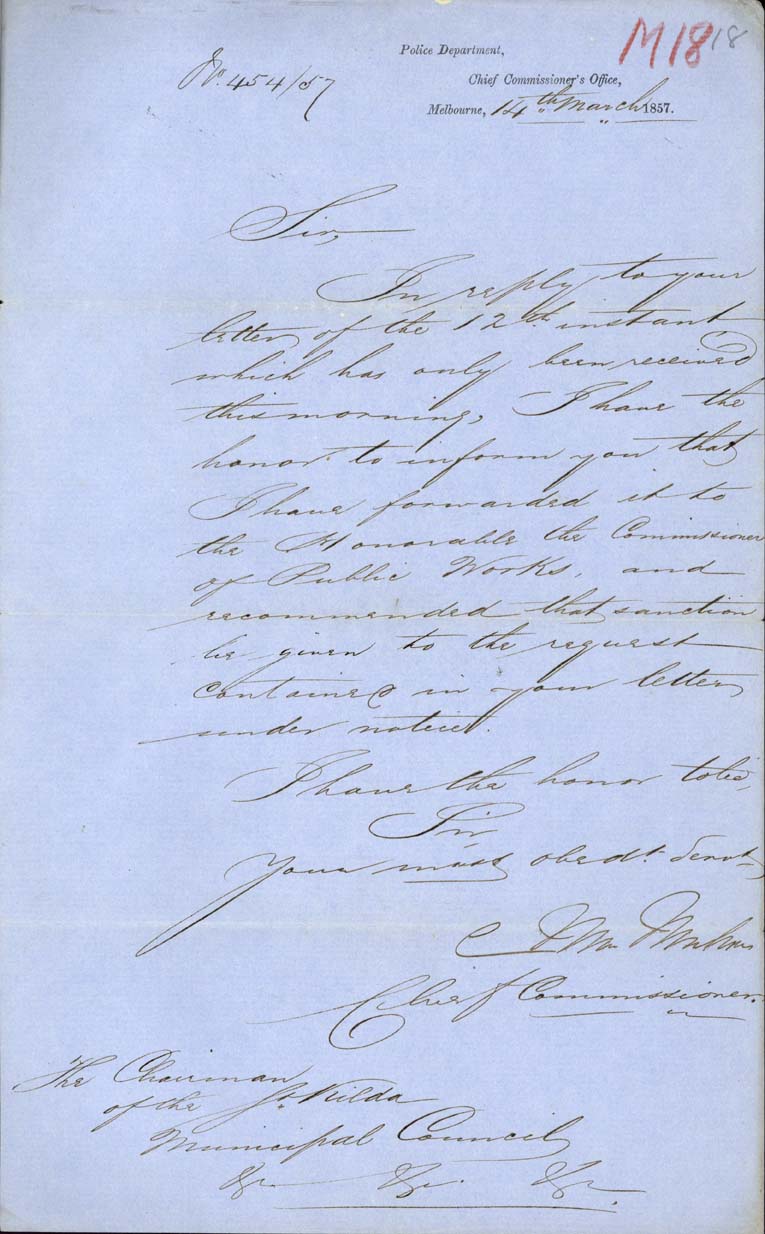 M18 18
No. 454/57
Police Department,
Chief Commissioner's Office,
Melbourne, 14th March 1857.
Sir,
In reply to your
letter of the 12th instant
which has only been received
this morning, I have the
honor to inform you that
I have forwarded it to
the Honorable the Commissioner
of Public Works, and
recommended that sanction
be given to the request
contained in your letter
under notice.
I have the honor to be,
Sir,
Your most obedt. Servt.
Chief Commissioner.
The Chairman
of the St. Kilda
Municipal Council
&c &c. &c.